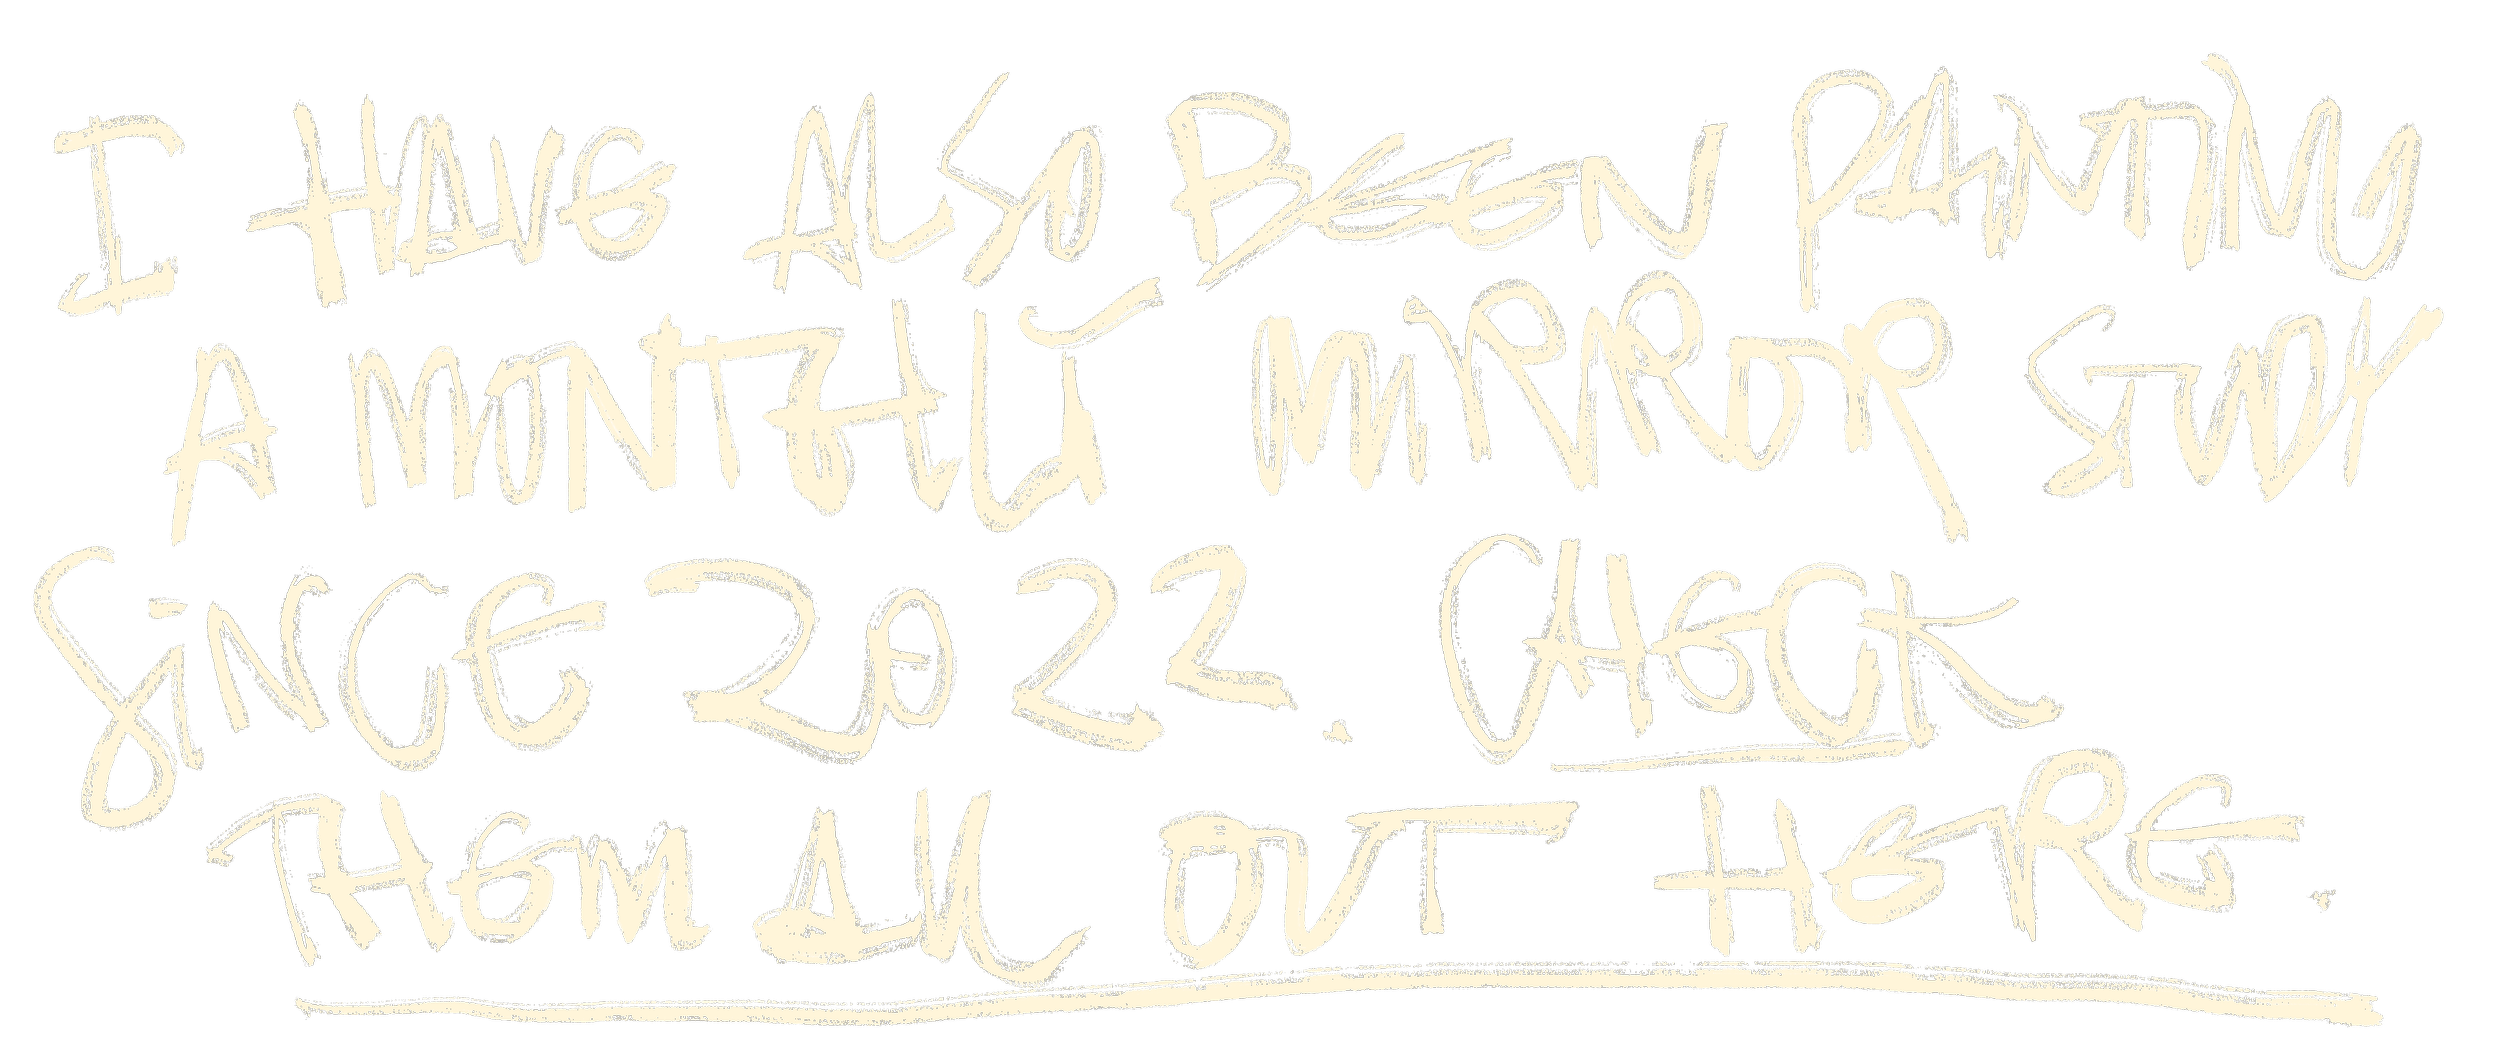 I HAVE ALSO BEEN PAINTING
A MONTHLY MIRROR STUDY
SINCE 2022. CHECK
THEM ALL OUT HERE.